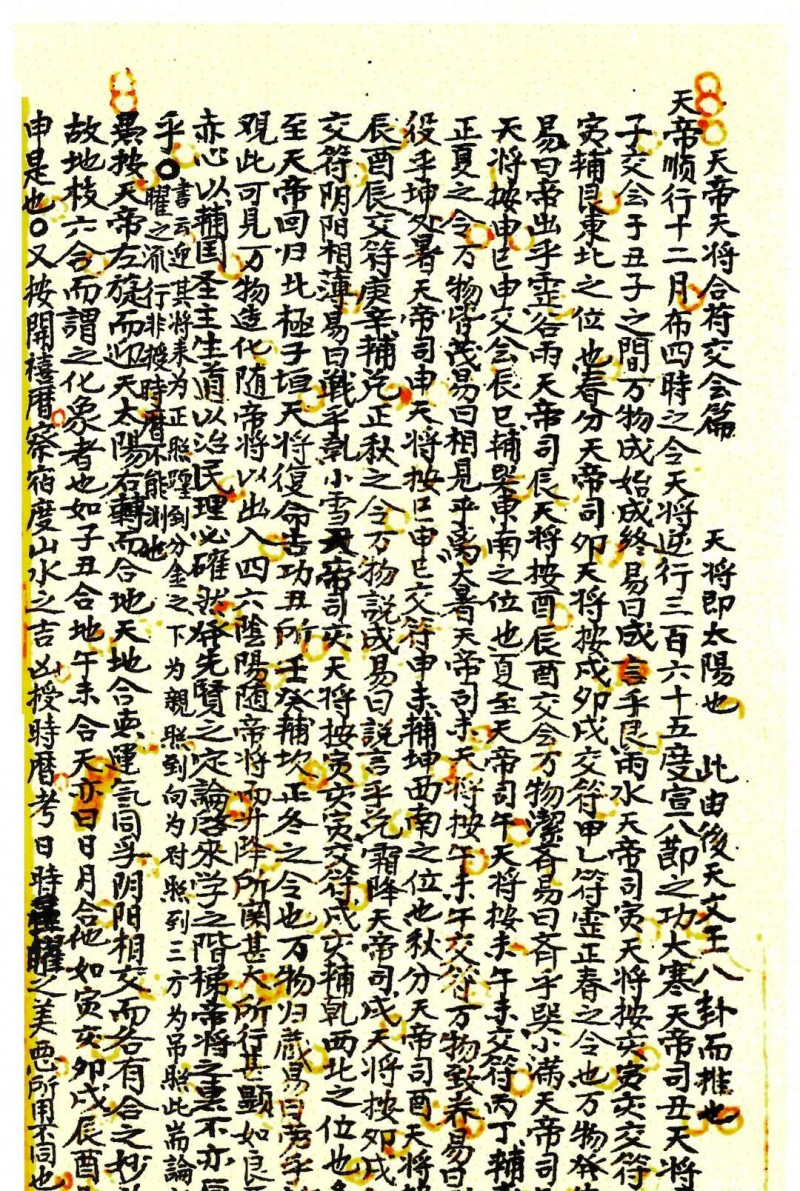 天帝天将合符交会篇　天将即太阳也　此由後天文王八卦而推也
天帝顺行十二月布四時之令天将逆行三百六十五度宣八節之功大寒天帝司丑天将
子交会于丑子之間万物成始成终易曰成言乎艮雨水天帝司寅天将按亥寅亥交符
寅辅艮東北之位也春分天帝司卯天将按戌卯戌交符甲乙符震正春之令也万物
易曰帝出乎震谷雨天帝司辰天将按酉辰酉交会万物潔齐易曰齐乎巽小满天帝司
天将按申巳申交会辰巳辅巽東南之位也夏至天帝司午天将按未午未交符丙丁辅
正夏之令万物皆茂易曰相見乎离大暑天帝司未天将按午未午交符万物致养易曰
役乎坤处暑天帝司申天将按巳申巳交符申未辅坤西南之位也秋分天帝司酉天将
辰酉辰交符庚辛辅兑正秋之令万物説成易曰説言乎兑霜降天帝司戌天将按卯戌
交符阴阳相薄易曰戦乎乹小雪天帝司亥天将按寅亥寅交符戌亥辅乾西北之位也
至天帝回归北極子垣天将復命告功丑所壬癸辅坎正冬之令也万物归藏易曰劳乎
观此可見万物造化随帝将以出入四六陰陽随帝将而升降所関甚大所行甚顕如良
亦心以辅国圣主生道以治民理必確然先賢之定論啓來学之階梯帝将之不亦
乎○書云迎其将来为正照躔到分金之下为親照到向为对照到三方为吊照此耑論
曜之流行非授時曆不能測也
按天帝左旋而迎天太陽右轉而合地天地合運气同孚阴阳相交而各有合之妙
故地枝六合而謂之化象者也如子丑合地午未合天亦曰日月合他如寅亥卯戌辰酉
申是也○又按開禧曆察宿度山水之吉凶授時曆考日時曜之美惡所用不同也